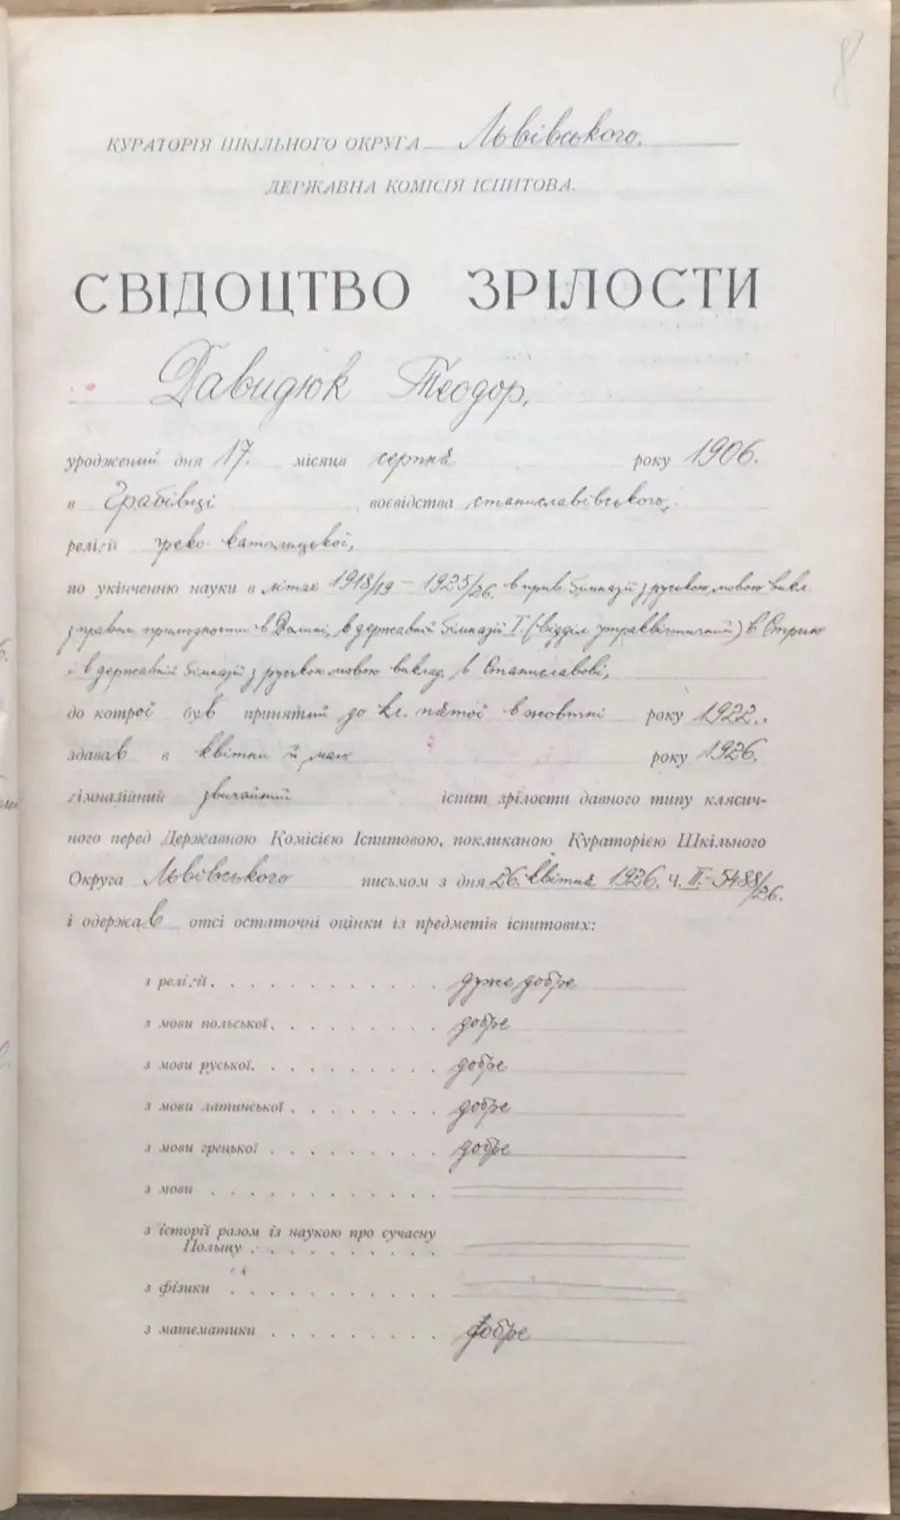 8
КУРАТОРІЯ ШКІЛЬНОГО ОКРУГА Львівського.
ДЕРЖАВНА КОМІСІЯ ІСПИТОВА.
СВІДОЦТВО ЗРІЛОСТИ
Давидюк Теодор,
уроджений дня 17. місяца серпня року 1906.
в Грабівці воєвідства станиславівського,
релігії греко-католицької,
по укінченню науки в літах 1918/19 – 1925/26. в прив. ґімназії з руською мовою викл.
з правом прилюдности в Долині, в державній ґімназії I. (відділ утраквістичний) в Стрию
і в державній ґімназії з руською мовою виклад. в Станиславові,
до котрої був принятий до кл. пятої в жовтні року 1922.
здавав в квітни й маю року 1926.
гімназійний звичайний іспит зрілости давного типу клясич-
ного перед Державною Комісією Іспитовою, покликаною Кураторією Шкільного
Округа Львівського письмом з дня 26. квітня 1926. Ч. II.-5488/26.
і одержав отсі остаточні оцінки із предметів іспитових:
з релігії. . . . . . . . . . . . дуже добре
з мови польської. . . . . . . . . добре
з мови руської. . . . . . . . . . добре
з мови латинської . . . . . . . . добре
з мови грецької . . . . . . . . . добре
з мови . . . . . . . . . . . .
з історії разом із наукою про сучасну
Польщу . . . . . . . . . .
з фізики . . . . . . . . . . .
з математики . . . . . . . . . добре